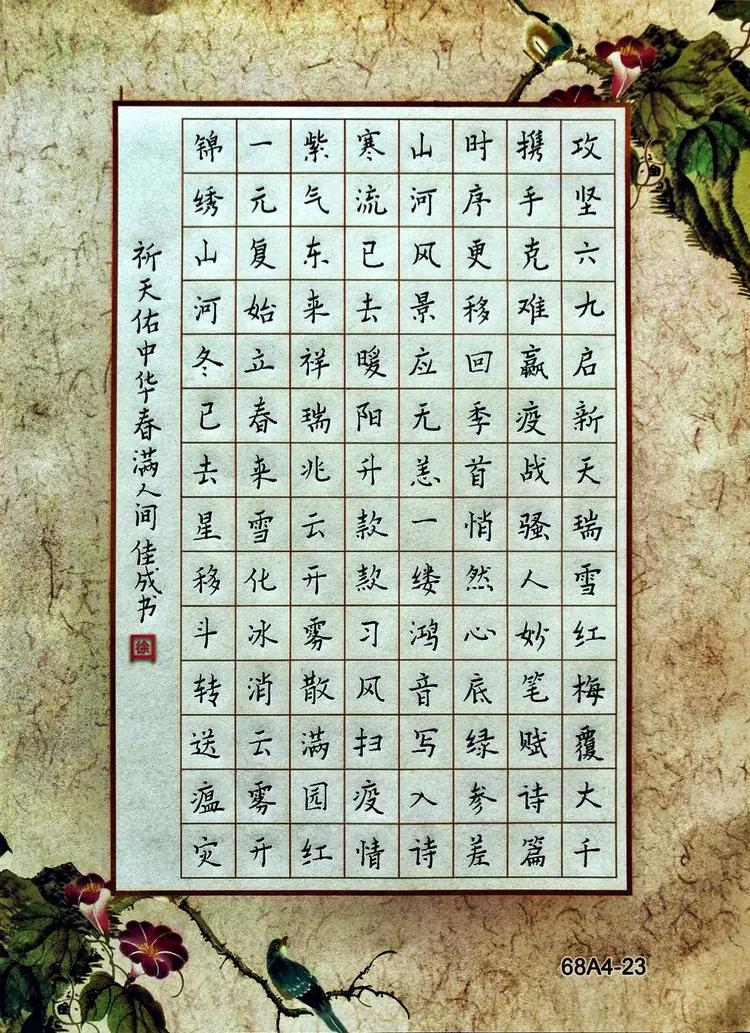 攻坚六九启新天瑞雪红梅覆大千
携手克难赢疫战骚人妙笔赋诗篇
时序更移回季首悄然心底绿参差
山河风景应无恙一缕鸿音写入诗
寒流已去暖阳升款款习风扫疫情
紫气东来祥瑞兆云开雾散满园红
一元复始立春来雪化冰消云雾开
锦绣山河冬已去星移斗转送瘟灾
祈天佑中华春满人间佳成书
徐
68A4-23